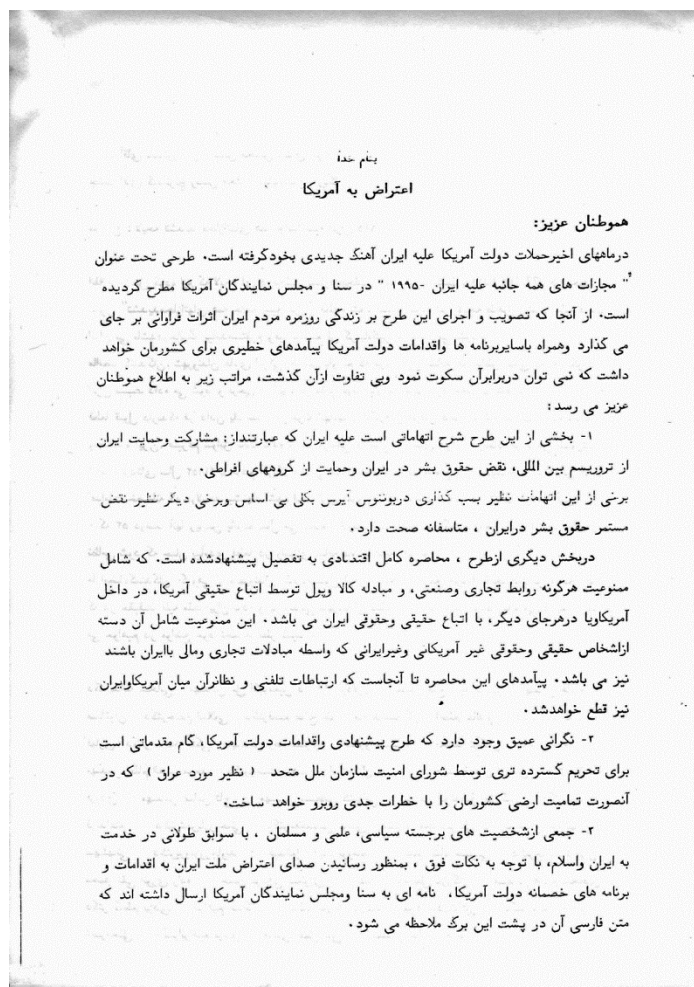 بنام خدا
اعتراض به آمریکا
هموطنان عزیز:
درماههای اخیرحملات دولت آمریکا علیه ایران آهنگ جدیدی بخودگرفته است. طرحی تحت عنوان
" مجازات های همه جانبه علیه ایران -۱۹۹۵ " در سنا و مجلس نمایندگان آمریکا مطرح گردیده
است. از آنجا که تصویب و اجرای این طرح بر زندگی روزمره مردم ایران اثرات فراوانی بر جای
می گذارد وهمراه باسایربرنامه ها واقدامات دولت آمریکا پیآمدهای خطیری برای کشورمان خواهد
داشت که نمی توان دربرابرآن سکوت نمود وبی تفاوت ازآن گذشت، مراتب زیر به اطلاع هموطنان
عزیز می رسد :
۱- بخشی از این طرح شرح اتهاماتی است علیه ایران که عبارتنداز: مشارکت وحمایت ایران
از تروریسم بین المللی، نقض حقوق بشر در ایران وحمایت از گروههای افراطی.
برخی از این اتهامات نظیر بمب گذاری دربوئنوس آیرس بکلی بی اساس وبرخی دیگر نظیر نقض
مستمر حقوق بشر درایران ، متاسفانه صحت دارد.
دربخش دیگری ازطرح ، محاصره کامل اقتصادی به تفصیل پیشنهادشده است. که شامل
ممنوعیت هرگونه روابط تجاری وصنعتی، و مبادله کالا وپول توسط اتباع حقیقی آمریکا، در داخل
آمریکاویا درهرجای دیگر، با اتباع حقیقی وحقوقی ایران می باشد. این ممنوعیت شامل آن دسته
ازاشخاص حقیقی وحقوقی غیر آمریکائی وغیرایرانی که واسطه مبادلات تجاری ومالی باایران باشند
نیز می باشد. پیآمدهای این محاصره تا آنجاست که ارتباطات تلفنی و نظائرآن میان آمریکاوایران
نیز قطع خواهدشد.
۲- نگرانی عمیق وجود دارد که طرح پیشنهادی واقدامات دولت آمریکا، گام مقدماتی است
برای تحریم گسترده تری توسط شورای امنیت سازمان ملل متحد ( نظیر مورد عراق ) که در
آنصورت تمامیت ارضی کشورمان را با خطرات جدی روبرو خواهد ساخت.
۳- جمعی ازشخصیت های برجسته سیاسی، علمی و مسلمان ، با سوابق طولانی در خدمت
به ایران واسلام، با توجه به نکات فوق ، بمنظور رسانیدن صدای اعتراض ملت ایران به اقدامات و
برنامه های خصمانه دولت آمریکا، نامه ای به سنا ومجلس نمایندگان آمریکا ارسال داشته اند که
متن فارسی آن در پشت این برگ ملاحظه می شود.